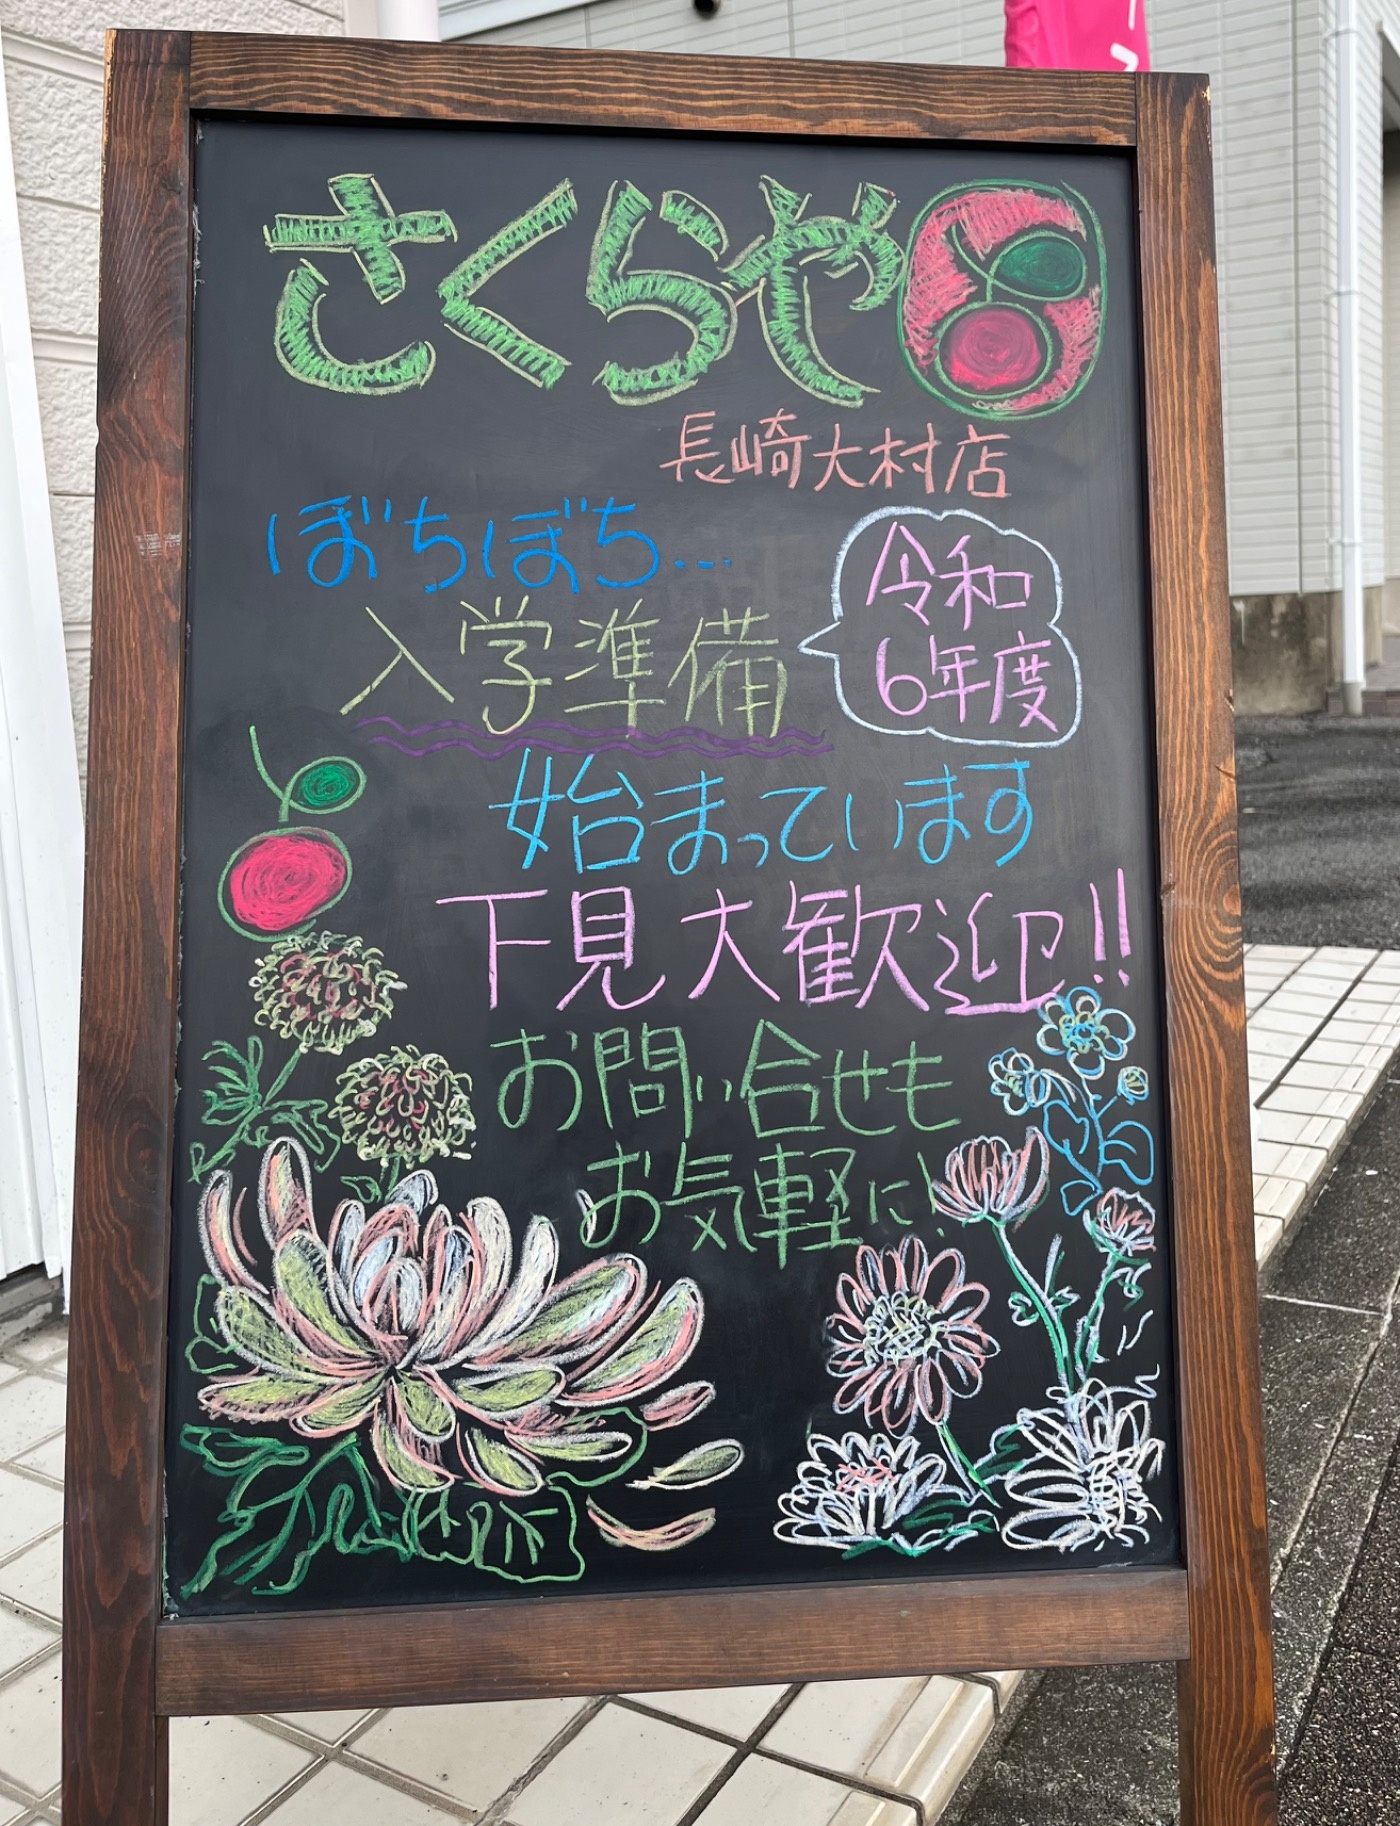 さくらや
長崎大村店
ぼちぼち…
入学準備
令和
6年度
始まっています
下見大歓迎!!
お問い合せも
お気軽に!